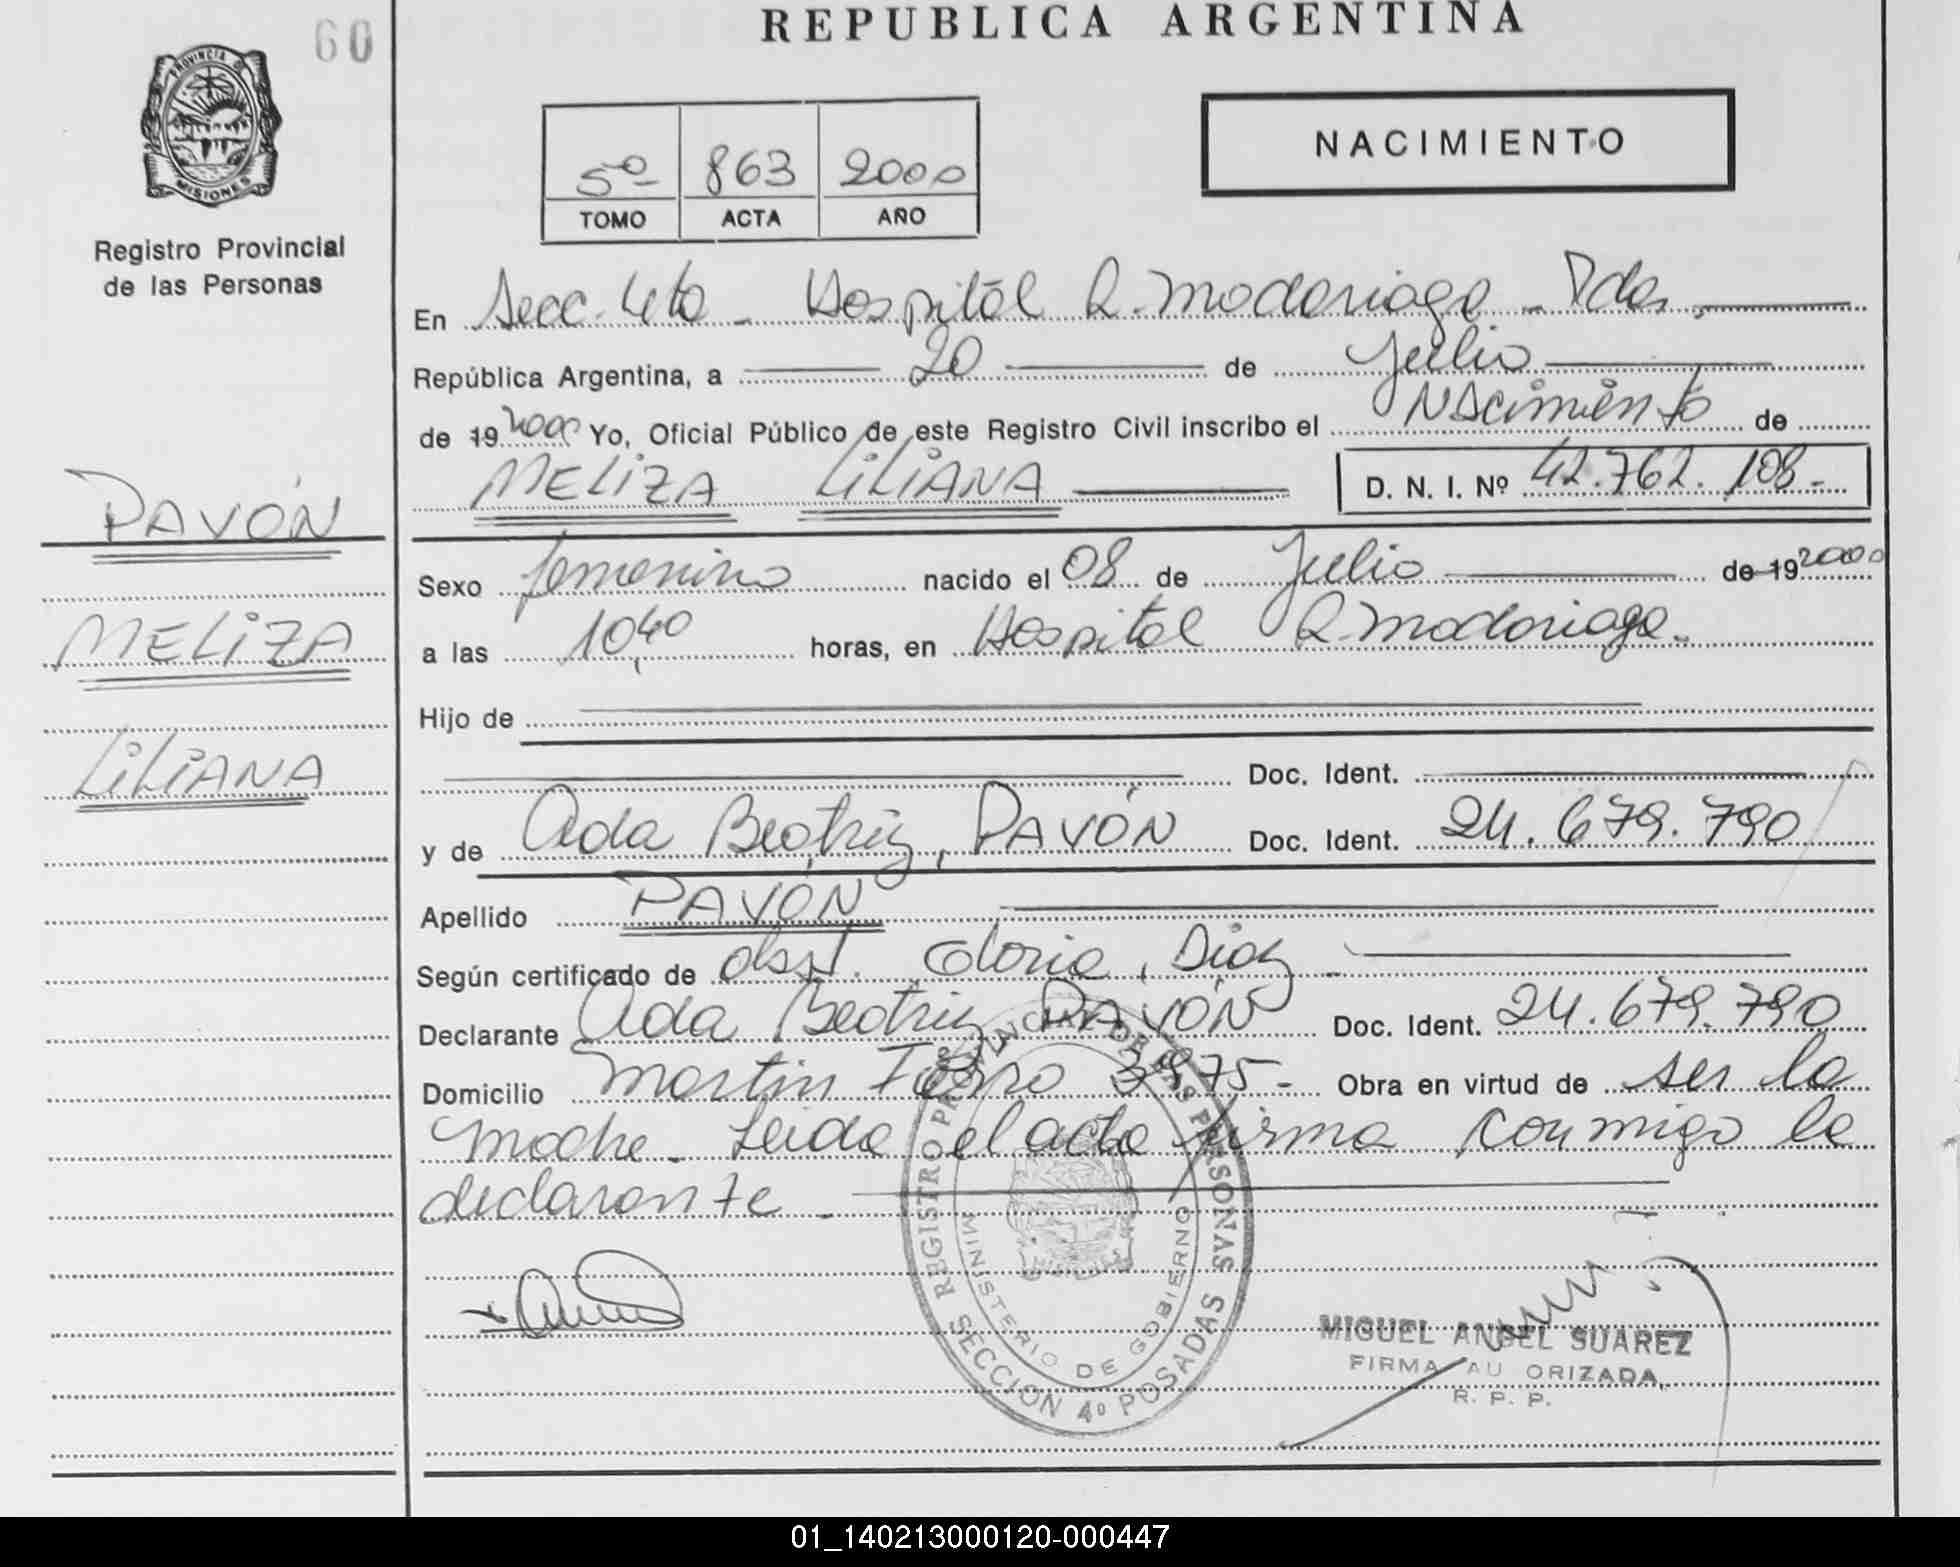 60
REPUBLICA ARGENTINA
PROVINCIA D MISIONES
Registro Provincial
de las Personas
NACIMIENTO
5º 863 2000
TOMO ACTA AÑO
En Secc. 4ta - Hospital R. Madariaga - Pdas.
República Argentina, a 20 de Julio
de 19 2000 Yo, Oficial Público de este Registro Civil inscribo el Nacimiento de
MELIZA LILIANA D. N. I. Nº 42.762.108.-
PAVÓN
MELIZA
LILIANA
Sexo femenino nacido el 08 de Julio de 19 2000
a las 10,40 horas, en Hospital R. Madariaga.
Hijo de
Doc. Ident.
y de Ada Beatriz, PAVÓN Doc. Ident. 24.679.790
Apellido PAVÓN
Según certificado de Obst. Gloria, Diaz -
Declarante Ada Beatriz PAVÓN Doc. Ident. 24.679.790
Domicilio Martin Fierro 3975 - Obra en virtud de ser la
madre. Leida el acta firma conmigo la
declarante -
REGISTRO PROVINCIAL DE LAS PERSONAS
MINISTERIO DE GOBIERNO
SECCION 4º POSADAS
MIGUEL ANGEL SUAREZ
FIRMA AU ORIZADA
R. P. P.
01_140213000120-000447